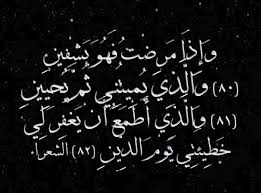 وَإِذَا مَرِضْتُ فَهُوَ يَشْفِينِ
(٨٠) وَالَّذِي يُمِيتُنِي ثُمَّ يُحْيِينِ
(٨١) وَالَّذِي أَطْمَعُ أَن يَغْفِرَ لِي
خَطِيئَتِي يَوْمَ الدِّينِ (٨٢) الشعراء